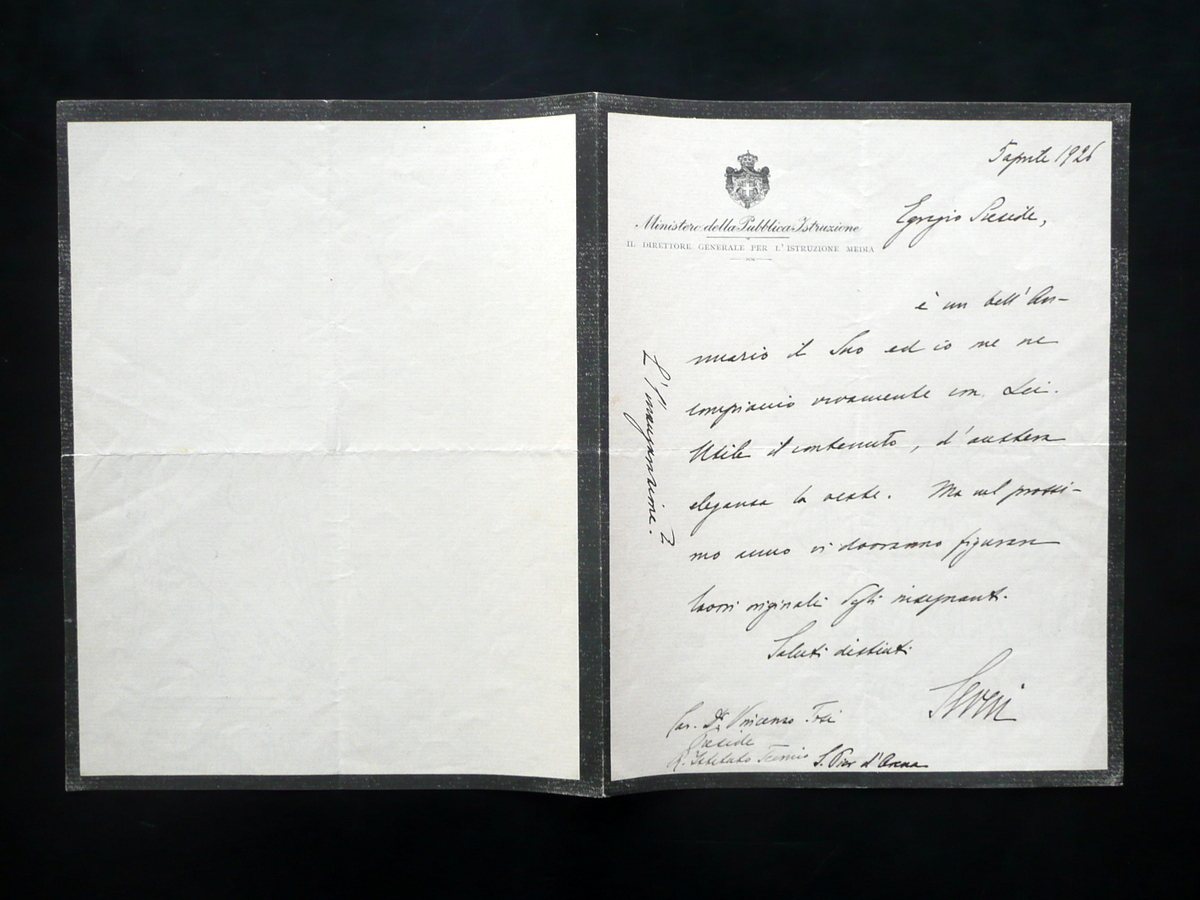 5 aprile 1926
Ministero della Pubblica Istruzione
IL DIRETTORE GENERALE PER L'ISTRUZIONE MEDIA
Egregio Preside,
è un bell'An-
nuario il Suo ed io me ne
compiaccio vivamente con Lei.
Utile il contenuto, d'austera
eleganza la veste. Ma nel prossi-
mo anno vi dovranno figurare
lavori originali degli insegnanti.
Saluti distinti
Cav. Dr. Vincenzo Tosi
Preside
R. Istituto Tecnico S. Pier d'Arena